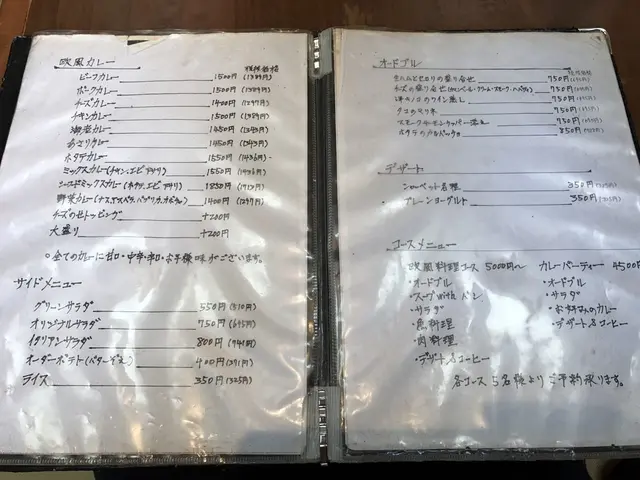 欧風カレー 税抜価格
ビーフカレー 1500円(1389円)
ポークカレー 1500円(1389円)
チーズカレー 1400円(1297円)
チキンカレー 1500円(1389円)
海老カレー 1450円(1343円)
あさりカレー 1450円(1343円)
ホタテカレー 1550円(1436円)
ミックスカレー(チキン、エビ、アサリ) 1550円(1436円)
シーフードミックスカレー(ホタテ、エビ、アサリ) 1850円(1713円)
野菜カレー 1400円(1297円)
チーズのせトッピング +200円
大盛り +200円
○全てのカレーに甘口・中辛・辛口・お子様味がございます。
サイドメニュー
グリーンサラダ 550円(510円)
オリジナルサラダ 750円(695円)
イタリアンサラダ 800円(741円)
オーダーポテト(バター付) 400円(371円)
ライス 350円(325円)
オードブル
税抜価格
750円
チズの盛り合せ 750円
ワイン蒸し 750円
タコのマリネ 750円
スモークサーモン 750円
ホタテのカルパッチョ 850円
デザート
シャーベット各種 350円
プレーンヨーグルト 350円
コースメニュー
欧風料理コース 5000円〜 カレーパーティー 4500円
・オードブル ・オードブル
・スープwithパン ・サラダ
・サラダ ・お好みのカレー
・魚料理 ・デザート&コーヒー
・肉料理
・デザート&コーヒー
各コース5名様よりご予約承ります。